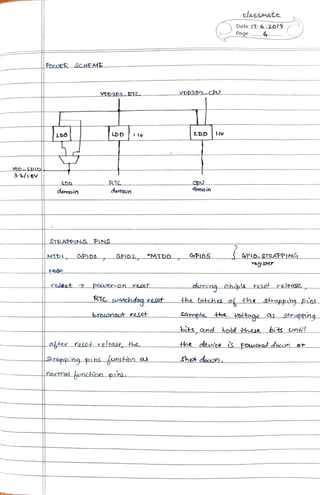 classmate
Date 17.6.2019
Page 4
POWER SCHEME
VDD3P3_RTC VDD3P3_CPU
LDO LDO 1.1V LDO 1.1V
VDD_SDIO
3.3/1.8V
SDIO RTC CPU
domain domain domain
STRAPPING PINS
MTDI, GPIO0, GPIO2, MTDO, GPIO5 } GPIO_STRAPPING
register
reset → power-on reset
RTC watchdog reset
brownout reset
during chip's reset release,
the latches of the strapping pins
sample the voltage as strapping
bits, and hold these bits until
the device is powered down or
shut down.
after reset release, the
strapping pins function as
normal function pins.